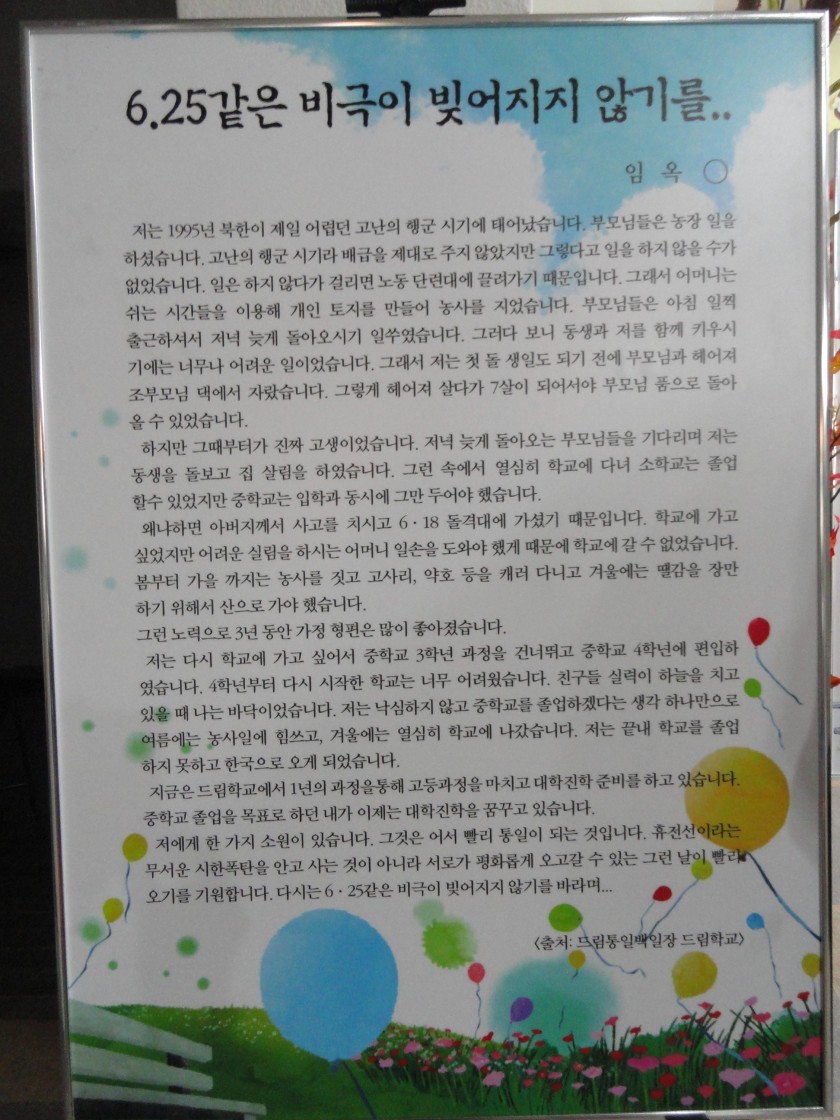 6.25같은 비극이 빚어지지 않기를..
임 옥 ○
저는 1995년 북한이 제일 어렵던 고난의 행군 시기에 태어났습니다. 부모님들은 농장 일을
하셨습니다. 고난의 행군 시기라 배급을 제대로 주지 않았지만 그렇다고 일을 하지 않을 수가
없었습니다. 일은 하지 않다가 걸리면 노동 단련대에 끌려가기 때문입니다. 그래서 어머니는
쉬는 시간들을 이용해 개인 토지를 만들어 농사를 지었습니다. 부모님들은 아침 일찍
출근하셔서 저녁 늦게 돌아오시기 일쑤였습니다. 그러다 보니 동생과 저를 함께 키우시
기에는 너무나 어려운 일이었습니다. 그래서 저는 첫 돌 생일도 되기 전에 부모님과 헤어져
조부모님 댁에서 자랐습니다. 그렇게 헤어져 살다가 7살이 되어서야 부모님 품으로 돌아
올 수 있었습니다.
하지만 그때부터가 진짜 고생이었습니다. 저녁 늦게 돌아오는 부모님들을 기다리며 저는
동생을 돌보고 집 살림을 하였습니다. 그런 속에서 열심히 학교에 다녀 소학교는 졸업
할수 있었지만 중학교는 입학과 동시에 그만 두어야 했습니다.
왜냐하면 아버지께서 사고를 치시고 6·18 돌격대에 가셨기 때문입니다. 학교에 가고
싶었지만 어려운 실림을 하시는 어머니 일손을 도와야 했게 때문에 학교에 갈 수 없었습니다.
봄부터 가을 까지는 농사를 짓고 고사리, 약호 등을 캐러 다니고 겨울에는 땔감을 장만
하기 위해서 산으로 가야 했습니다.
그런 노력으로 3년 동안 가정 형편은 많이 좋아졌습니다.
저는 다시 학교에 가고 싶어서 중학교 3학년 과정을 건너뛰고 중학교 4학년에 편입하
였습니다. 4학년부터 다시 시작한 학교는 너무 어려웠습니다. 친구들 실력이 하늘을 치고
있을 때 나는 바닥이었습니다. 저는 낙심하지 않고 중학교를 졸업하겠다는 생각 하나만으로
여름에는 농사일에 힘쓰고, 겨울에는 열심히 학교에 나갔습니다. 저는 끝내 학교를 졸업
하지 못하고 한국으로 오게 되었습니다.
지금은 드림학교에서 1년의 과정을통해 고등과정을 마치고 대학진학 준비를 하고 있습니다.
중학교 졸업을 목표로 하던 내가 이제는 대학진학을 꿈꾸고 있습니다.
저에게 한 가지 소원이 있습니다. 그것은 어서 빨리 통일이 되는 것입니다. 휴전선이라는
무서운 시한폭탄을 안고 사는 것이 아니라 서로가 평화롭게 오고갈 수 있는 그런 날이 빨리
오기를 기원합니다. 다시는 6·25같은 비극이 빚어지지 않기를 바라며...
〈출처: 드림통일백일장 드림학교〉